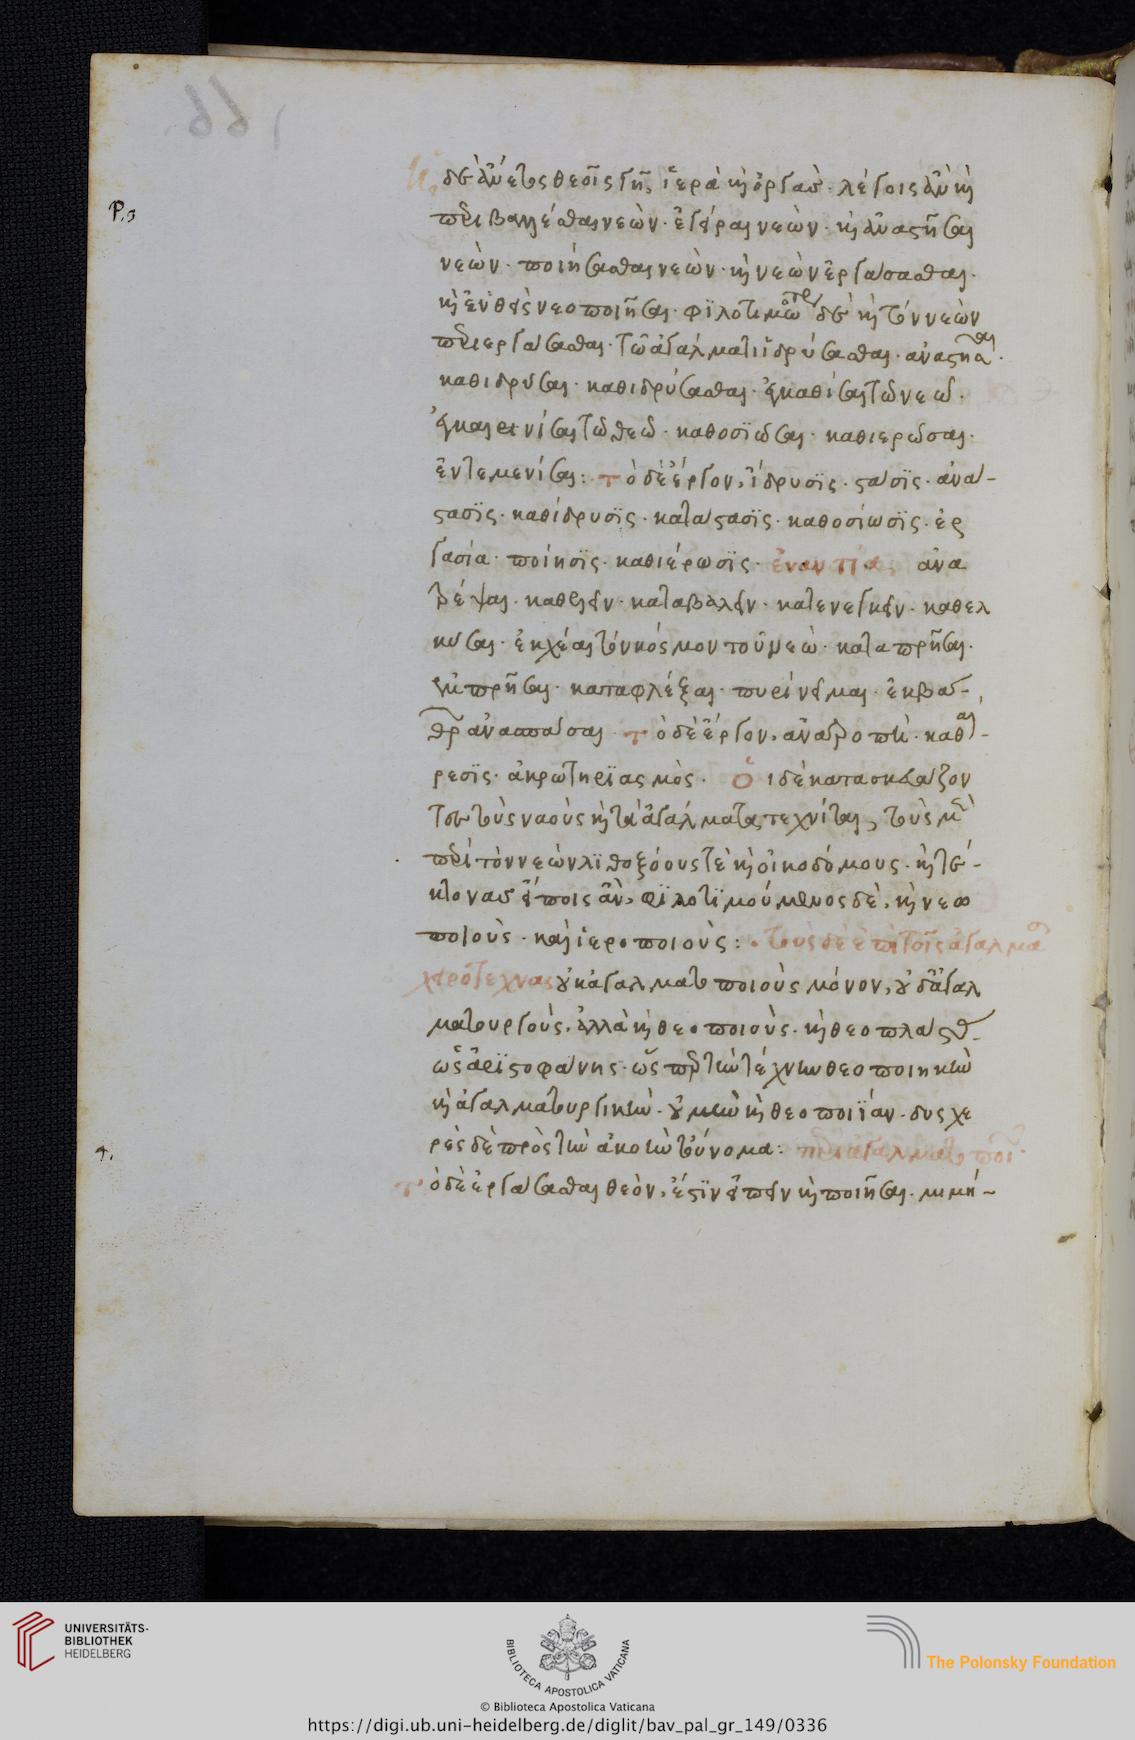 δὲ ἄνετος θεοῖς γῆ, ἱερὰ καὶ ὀργάς. λέγοις ἂν καὶ
περιβαλλέσθαι νεὼν. ἐγεῖραι νεὼν. καὶ ἀναστῆσαι
νεὼν. ποιήσασθαι νεὼν. καὶ νεὼν ἐργάσασθαι.
καὶ ἔνθεις νεοποιῆσαι. φιλοτιμω δὲ καὶ τὸν νεὼν
περιεργάσασθαι. τῶ ἀγάλματι ἱδρύσασθαι. ἀναστῆσαι.
καθιδρύσαι. καθιδρύσασθαι. ἐγκαθίσαι τῶ νεώ.
ἐγκαινίσαι τῶ θεῶ. καθοσιῶσαι. καθιερῶσαι.
ἐντεμενίσαι: τὸ δὲ ἔργον, ἵδρυσις. στάσις. ἀνά-
στασις. καθίδρυσις. κατάστασις. καθοσίωσις. ἐρ
γασία. ποίησις. καθιέρωσις. ἐναντία, ἀνα
τρέψαι. καθελεῖν. καταβαλεῖν. κατενεγκεῖν. καθελ
κύσαι. ἐκχέαι τὸν κόσμον τοῦ νεὼ. καταπρῆσαι.
ἐμπρῆσαι. καταφλέξαι. πυρὶ νεῖμαι. ἐκ βά-
θρ ἀνασπάσαι. τὸ δὲ ἔργον, ἀνατροπὴ. καθαί-
ρεσις. ἀκρωτηριασμὸς. Οἱ δὲ κατασκευάζον
τες τοὺς ναοὺς καὶ τὰ ἀγάλματα τεχνίται, τοὺς μὲν
περὶ τὸν νεὼν λιθοξόους τὲ καὶ οἰκοδόμους. καὶ τέ-
κτονας εἴποις ἂν, φιλοτιμούμενος δὲ, καὶ νεω
ποιοὺς. καὶ ἱεροποιοὺς: τοὺς δὲ ἐπὶ τοῖς ἀγάλμα
χειροτέχνας οὐκ ἀγαλματοποιοὺς μόνον, οὐδ' ἀγαλ
ματουργοὺς, ἀλλὰ καὶ θεοποιοὺς. καὶ θεοπλάστ
ὡς ἀριστοφάνης. ὡς περ τὴν τέχνην θεοποιητικὴν
καὶ ἀγαλματουργικὴν. οὐ μὴν καὶ θεοποιΐαν. δυσχε
ρὲς δὲ πρὸς τὴν ἀκοὴν τὸ ὄνομα: περὶ ἀγαλματοποι
τὸ δὲ ἐργάσασθαι θεὸν, ἔστιν εἰπεῖν καὶ ποιῆσαι. μιμή-
UNIVERSITÄTS-
BIBLIOTHEK
HEIDELBERG
BIBLIOTECA APOSTOLICA VATICANA
The Polonsky Foundation
© Biblioteca Apostolica Vaticana
https://digi.ub.uni-heidelberg.de/diglit/bav_pal_gr_149/0336